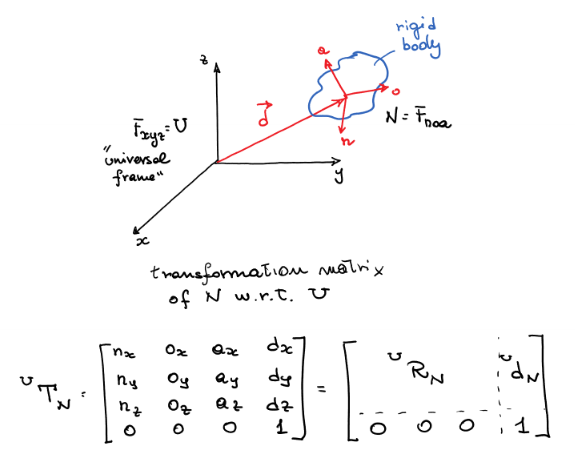 rigid
body
z
a
o
n
d
F̄xyz = U
"universal
frame"
N = F̄noa
y
x
transformation matrix
of N w.r.t. U
ᵁT_N = [ nx ox ax dx = [ ᵁR_N ᵁd_N
ny oy ay dy
nz oz az dz
0 0 0 1 ] 0 0 0 1 ]